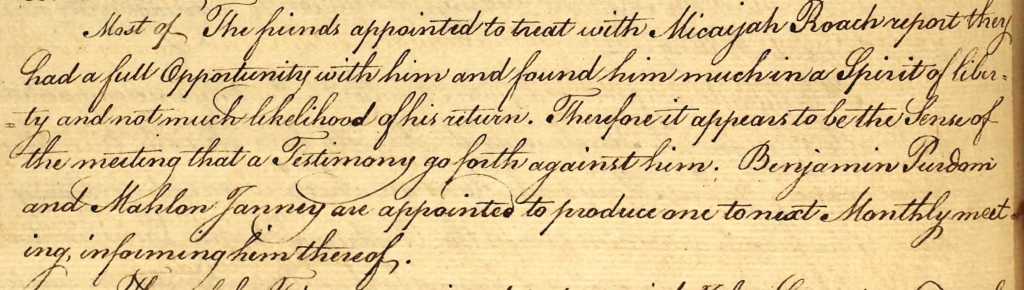 Most of The friends appointed to treat with Micaijah Roach report they
had a full Opportunity with him and found him much in a Spirit of liber-
ty and not much likelihood of his return. Therefore it appears to be the Sense of
the meeting that a Testimony go forth against him. Benjamin Purdom
and Mahlon Janney are appointed to produce one to next Monthly meet-
ing, informing him thereof.